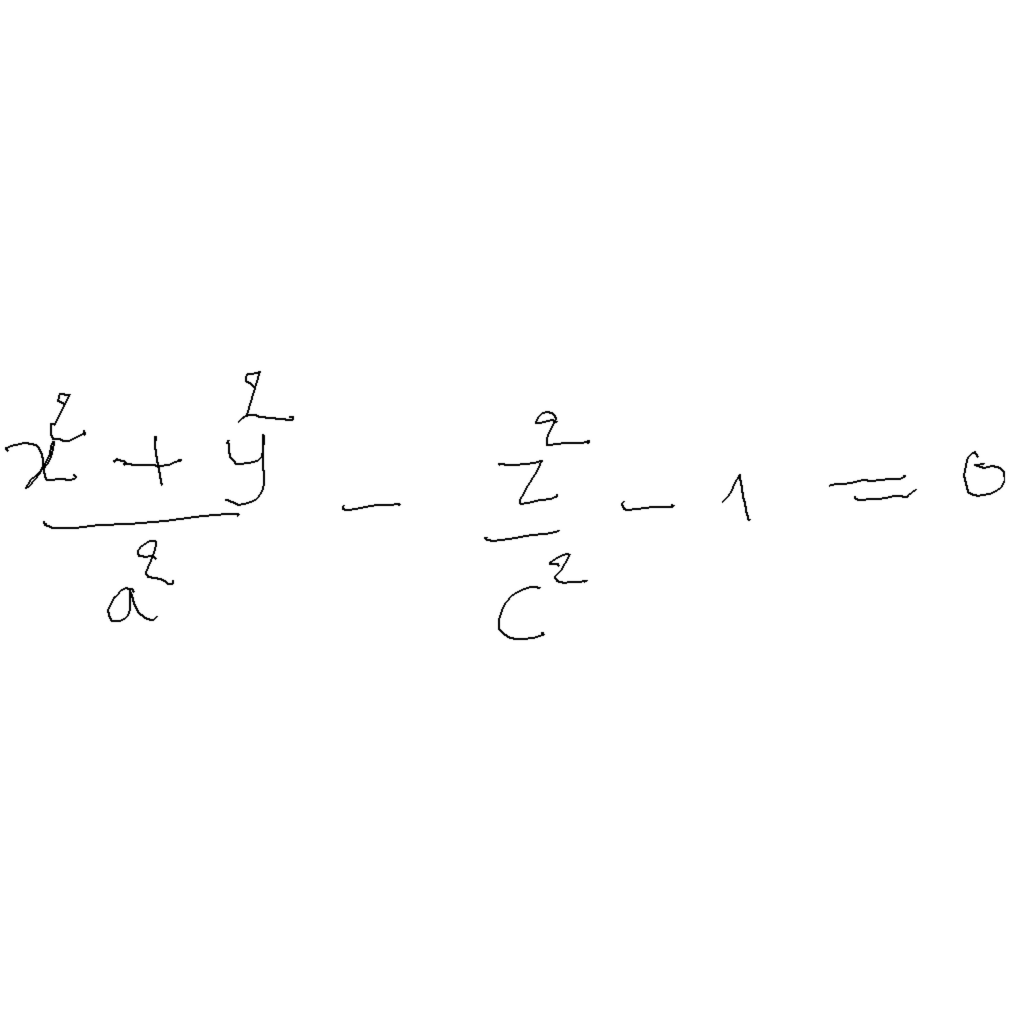 \frac{x^2 + y^2}{a^2} - \frac{z^2}{c^2} - 1 = 0